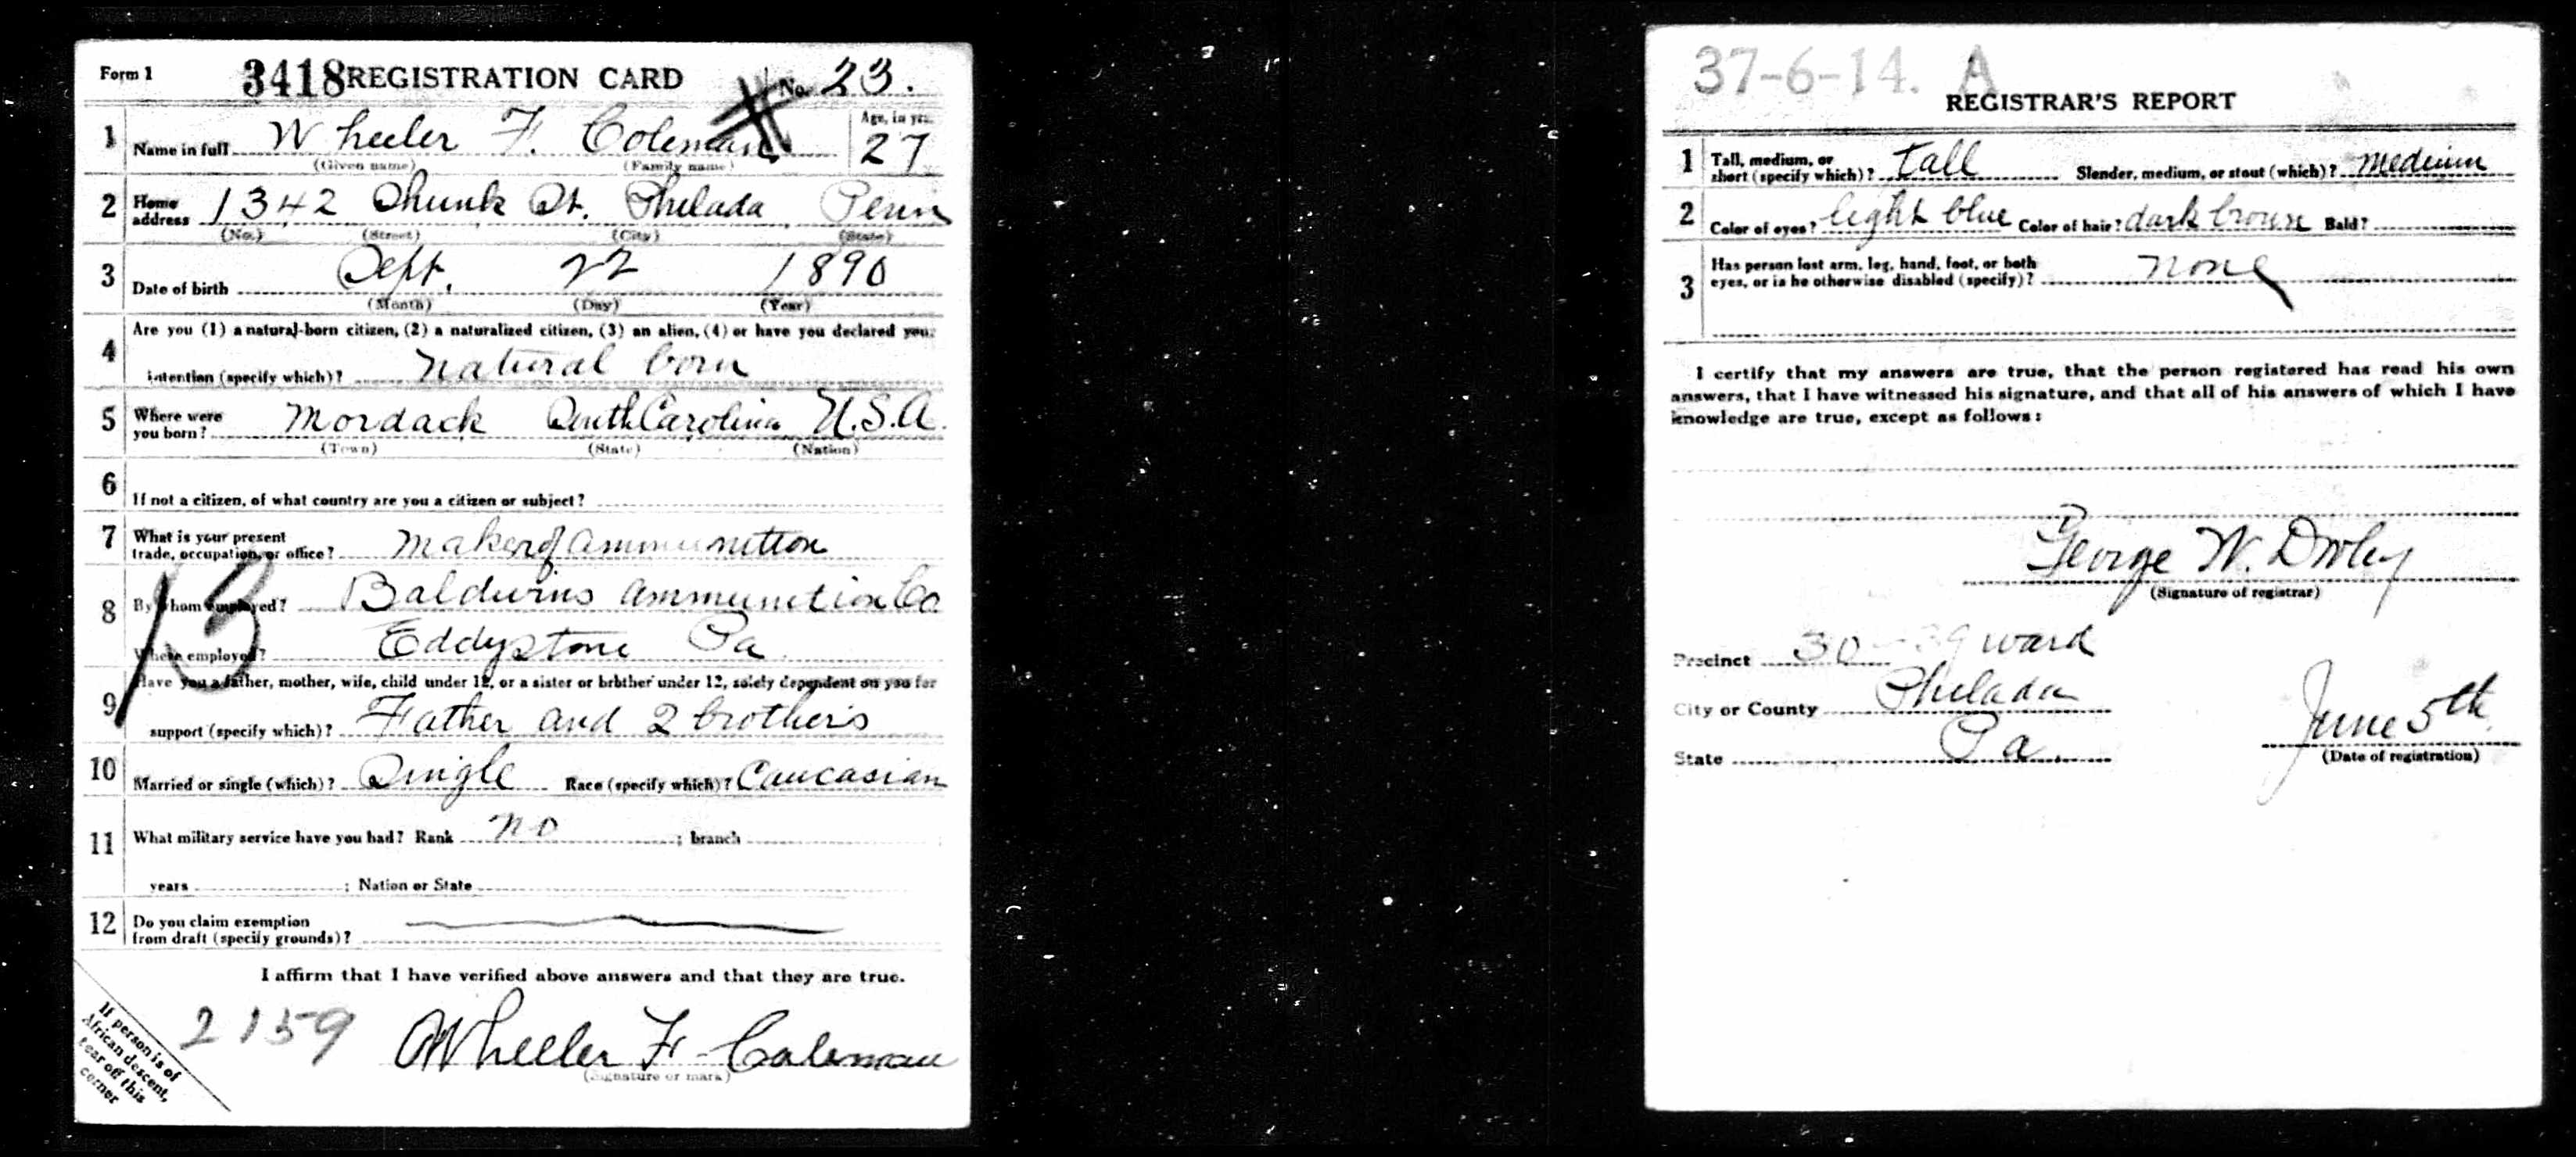 Form 1 3418 REGISTRATION CARD No. 23.
1 Name in full Wheeler F. Coleman Age, in yrs. 27
(Given name) (Family name)
2 Home address 1342 Shunk St. Philada Penn
(No.) (Street) (City) (State)
3 Date of birth Sept. 22 1890
(Month) (Day) (Year)
4 Are you (1) a natural-born citizen, (2) a naturalized citizen, (3) an alien, (4) or have you declared your
intention (specify which)? natural born
5 Where were you born? Mordack South Carolina U.S.A.
(Town) (State) (Nation)
6 If not a citizen, of what country are you a citizen or subject?
7 What is your present trade, occupation, or office? maker of ammunition
8 By whom employed? Baldwins ammunition Co
Where employed? Eddystone Pa
13
9 Have you a father, mother, wife, child under 12, or a sister or brother under 12, solely dependent on you for
support (specify which)? Father and 2 brothers
10 Married or single (which)? Single Race (specify which)? Caucasian
11 What military service have you had? Rank no ; branch
years ; Nation or State
12 Do you claim exemption
from draft (specify grounds)?
I affirm that I have verified above answers and that they are true.
2159 Wheeler F. Coleman
(Signature or mark)
If person is of
African descent,
tear off this
corner
37-6-14. A
REGISTRAR'S REPORT
1 Tall, medium, or
short (specify which)? Tall Slender, medium, or stout (which)? medium
2 Color of eyes? light blue Color of hair? dark brown Bald?
3 Has person lost arm, leg, hand, foot, or both
eyes, or is he otherwise disabled (specify)? none
I certify that my answers are true, that the person registered has read his own
answers, that I have witnessed his signature, and that all of his answers of which I have
knowledge are true, except as follows:
George W.
(Signature of registrar)
Precinct 30 - 39 ward
City or County Philada
State Pa. June 5th
(Date of registration)